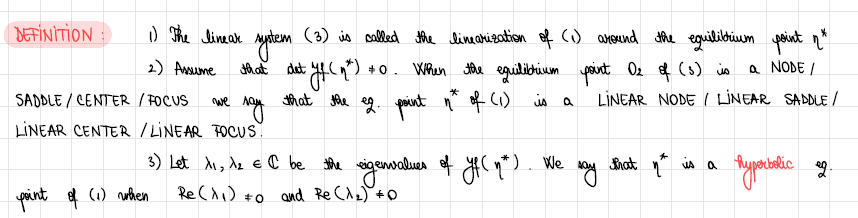 DEFINITION: 1) The linear system (3) is called the linearization of (1) around the equilibrium point η*
2) Assume that det Jf(η*) ≠ 0. When the equilibrium point O₂ of (3) is a NODE /
SADDLE / CENTER / FOCUS we say that the eq. point η* of (1) is a LINEAR NODE / LINEAR SADDLE /
LINEAR CENTER / LINEAR FOCUS.
3) Let λ₁, λ₂ ∈ ℂ be the eigenvalues of Jf(η*). We say that η* is a hyperbolic eq.
point of (1) when Re(λ₁) ≠ 0 and Re(λ₂) ≠ 0